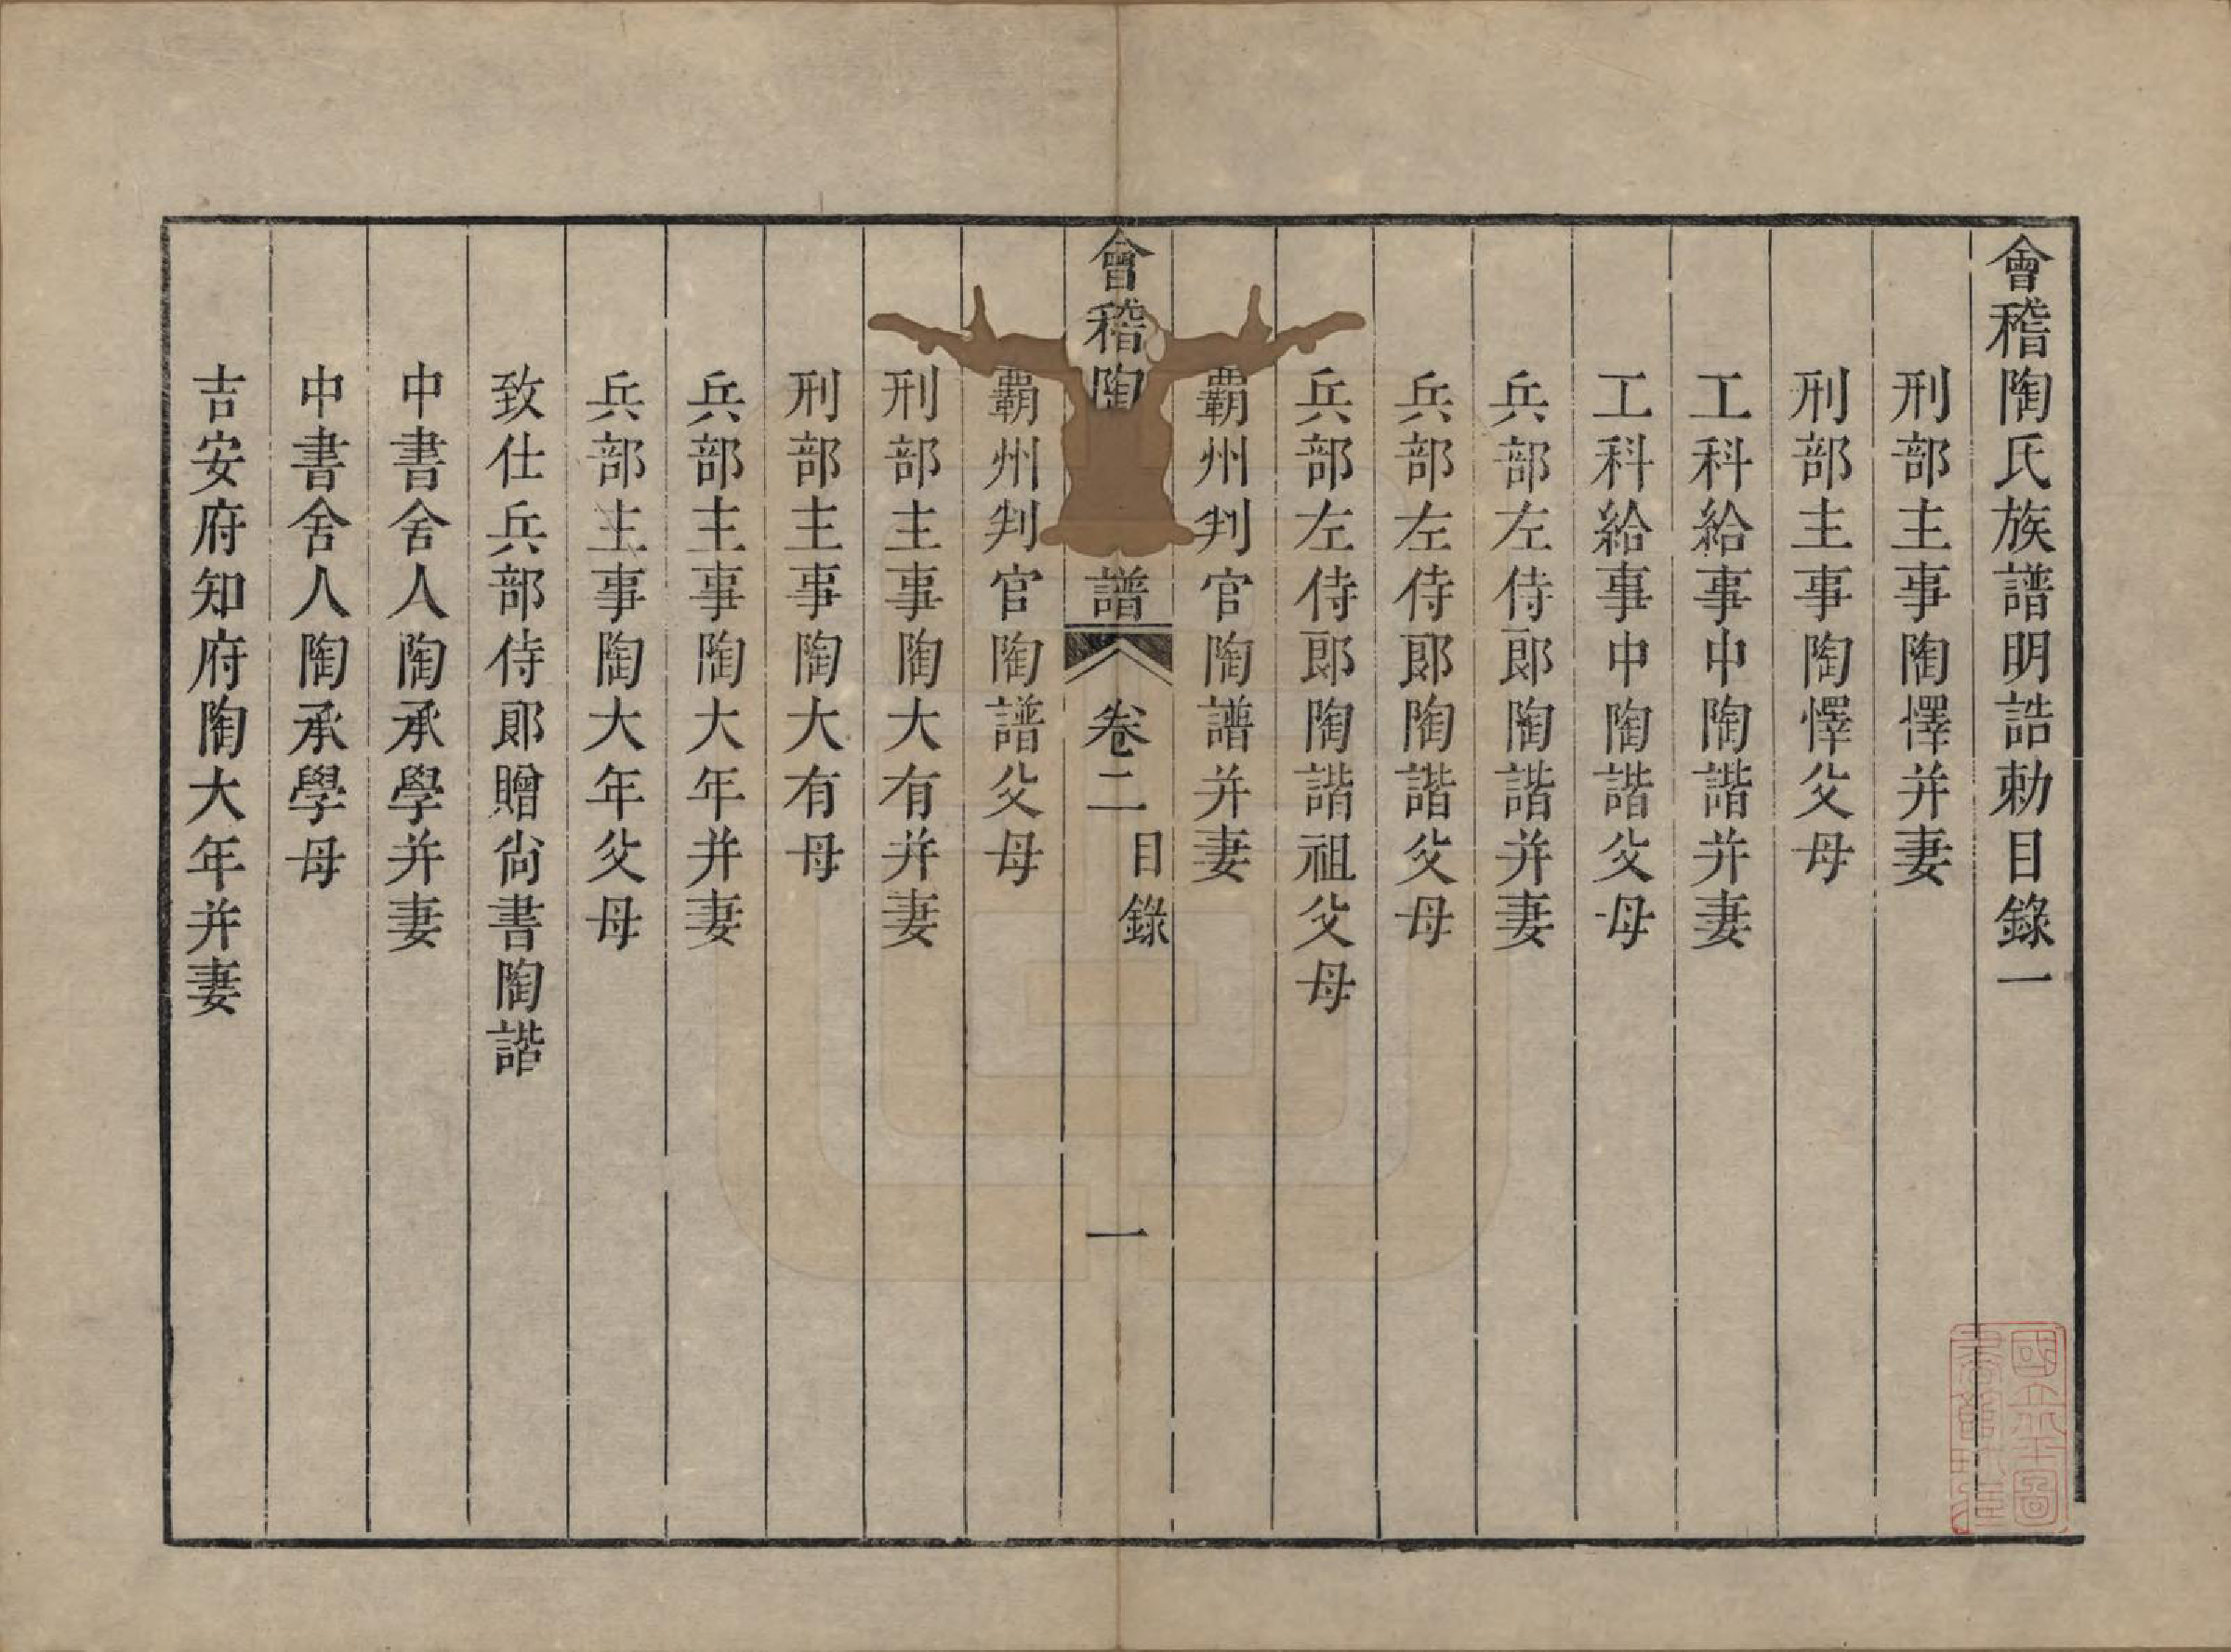 會稽陶氏族譜明誥勅目錄一
刑部主事陶懌并妻
刑部主事陶懌父母
工科給事中陶諧并妻
工科給事中陶諧父母
兵部左侍郎陶諧并妻
兵部左侍郎陶諧父母
兵部左侍郎陶諧祖父母
霸州判官陶譜并妻
會稽陶譜
卷二
目錄
一
霸州判官陶譜父母
刑部主事陶大有并妻
刑部主事陶大有母
兵部主事陶大年并妻
兵部主事陶大年父母
致仕兵部侍郎贈尚書陶諧
中書舍人陶承學并妻
中書舍人陶承學母
吉安府知府陶大年并妻